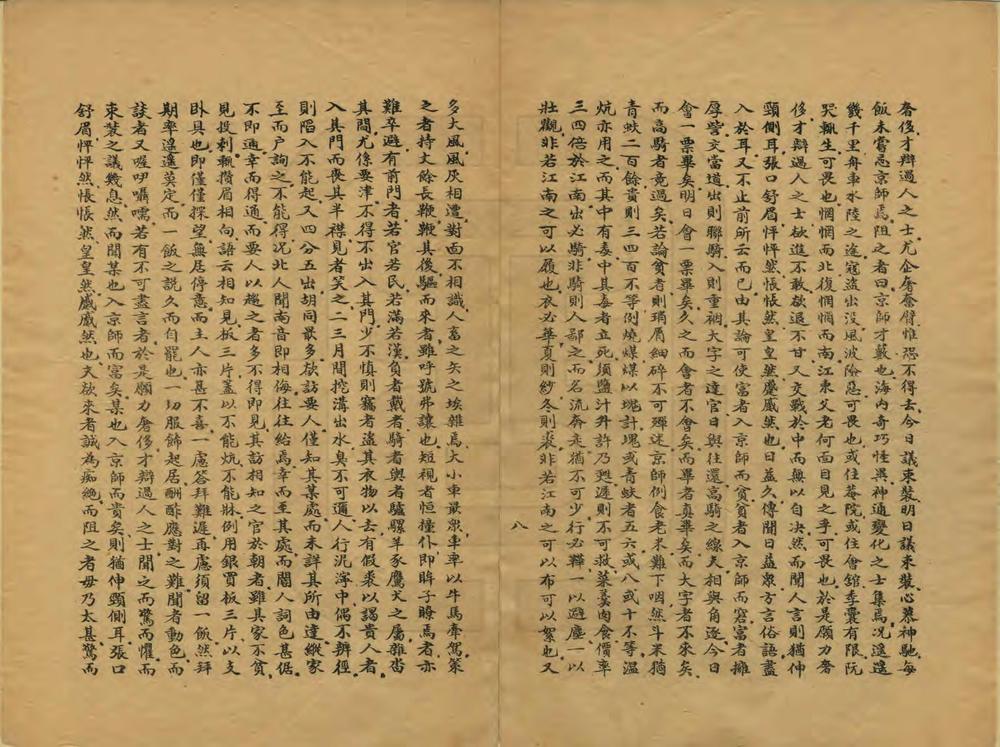 奢侈才辯過人之士尤企奮奮臂惟恐不得去今日議束裝明日議束裝心慕神馳每
飯未嘗忌京師焉阻之者曰京師才藪也海内奇巧怪異神通變化之士集焉况遥遥
幾千里舟車水陸之途寇盗出没風波險惡可畏也或住菴院或住會舘季囊有限阮
哭輒生可畏也惘惘而北復惘惘而南江東父老何面目見之乎可畏也於是願力奢
侈才辯過人之士欲進不敢欲退不甘又交戰於中而無以自决然而聞人言則猶伸
頸側耳張口舒眉怦怦然悵悵然皇皇然慼慼然也日益久傳聞日益衆方言俗語盡
入於耳又不止前所云而已由其論可使富者入京師而貧貧者入京師而窘富者擁
厚貲交當道出則聯騎入則重裀大字之達官日與往還高騎之線夫相與角逐今日
會一票畢矣明日會一票畢矣久之而會者不會矣而畢者真畢矣而大字者不來矣
而高騎者竟過矣若論貧者則瑣屑細碎不可殫述京師例食老米難下咽然斗米猶
青蚨二百餘貴則三四百不等例燒煤煤以塊計塊或青蚨者五六或八或十不等温
炕亦用之而其中有毒中其毒者立死須鹽汁升許乃甦遲則不可救菜羹肉食價率
三四倍於江南出必騎非騎則人鄙之而名流奔走猶不可少行必鞾一以避塵一以
壯觀非若江南之可以履也衣必華夏則紗冬則裘非若江南之可以布可以絮也又
八
多大風風灰相遭對面不相識人畜之矢之埃雜焉大小車最衆車率以牛馬牽駕策
之者持丈餘長鞭鞭其後驅而來者雖呼號弗讓也短視者恒撞仆即眸子瞭焉者亦
難卒避有前門者若官若民若滿若漢負者戴者騎者輿者驢騾羊豕鷹犬之屬雜沓
其間尤係要津不得不出入其門少不慎則竊者遠其衣物以去有假乘以謁貴人者
入其門而喪其半襟見者笑之二三月間挖溝出水臭不可邇人行汎濘中偶不辨徑
則陷入不能起又四分五出胡同最多欲訪要人僅知其某處而未詳其所由達縱家
至而户詢之不能得况北人聞南音即相侮往往紿焉幸而至其處而閽人詞色甚倨
不即通幸而得通而要人以趨之者多不得即見其訪相知之官於朝者雖其家不貧
見投刺輒攢眉相向語云相知見板三片蓋以不能炕不能牀例用銀買板三片以支
卧具也即僅僅探望無居停意而主人亦甚不喜一慮答拜難遲再慮須留一飯然拜
期率遑遑莫定而一飯之説久而自罷也一切服飾起居酬酢應對之難聞者動色而
談者又喔咿囁嚅若有不可盡言者於是願力奢侈才辯過人之士聞之而驚而懼而
束裝之議幾息然而聞某也入京師而富矣某也入京師而貴矣則猶伸頸側耳張口
舒眉怦怦然悵悵然皇皇然慼慼然也夫欲來者誠為痴絶而阻之者毋乃太甚驚而